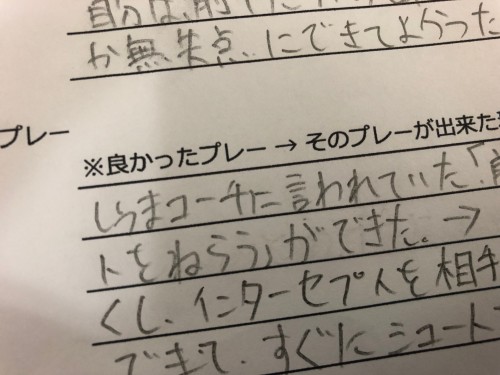 か無失点にできてよかった
プレー
※良かったプレー → そのプレーが出来た
しらまコーチに言われていた「
トをねらう」ができた。→
くし、インターセプトを相手
できて、すぐにシュート